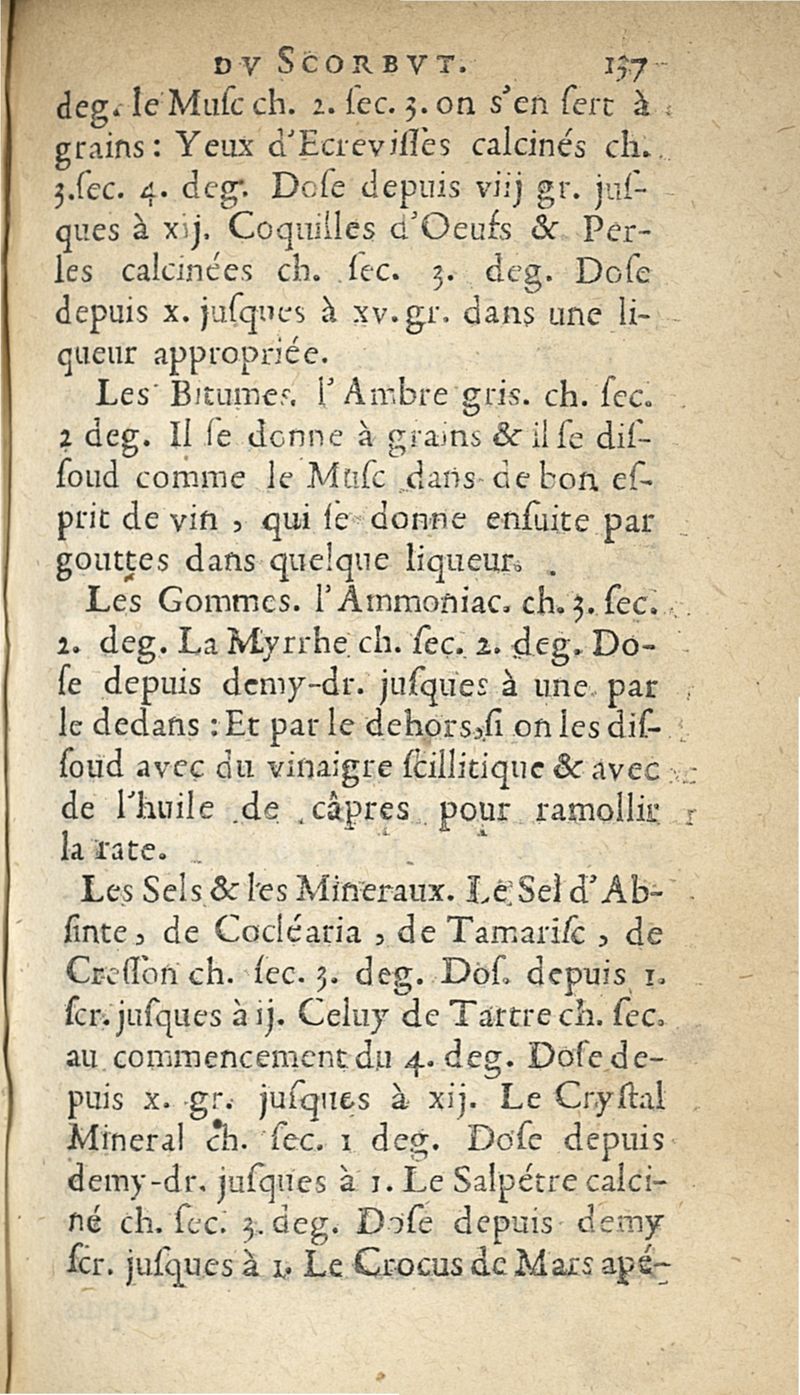 DV SCORBVT. 137
deg. le Muſc ch. 2. ſec. 3. on s'en ſert à
grains: Yeux d'Ecreviſſes calcinés ch.
3. ſec. 4. deg. Doſe depuis viij gr. juſ-
ques à xij. Coquilles d'Oeufs & Per-
les calcinées ch. ſec. 3. deg. Doſe
depuis x. juſques à xv. gr. dans une li-
queur appropriée.
Les Bitumes. l'Ambre gris. ch. ſec.
2 deg. Il ſe donne à grains & il ſe diſ-
ſoud comme le Muſc dans de bon eſ-
prit de vin, qui ſe donne enſuite par
gouttes dans quelque liqueur.
Les Gommes. l'Ammoniac. ch. 3. ſec.
2. deg. La Myrrhe ch. ſec. 2. deg. Do-
ſe depuis demy-dr. juſques à une par
le dedans: Et par le dehors, ſi on les diſ-
ſoud avec du vinaigre ſcillitique & avec
de l'huile de câpres pour ramollir
la rate.
Les Sels & les Mineraux. Le Sel d'Ab-
ſinte, de Cocléaria, de Tamariſc, de
Creſſon ch. ſec. 3. deg. Doſ. depuis 1.
ſcr. juſques à ij. Celuy de Tartre ch. ſec.
au commencement du 4. deg. Doſe de-
puis x. gr. juſques à xij. Le Cryſtal
Mineral ch. ſec. 1 deg. Doſe depuis
demy-dr. juſques à 1. Le Salpétre calci-
né ch. ſec. 3. deg. Doſe depuis demy
ſcr. juſques à 1. Le Crocus de Mars apé-